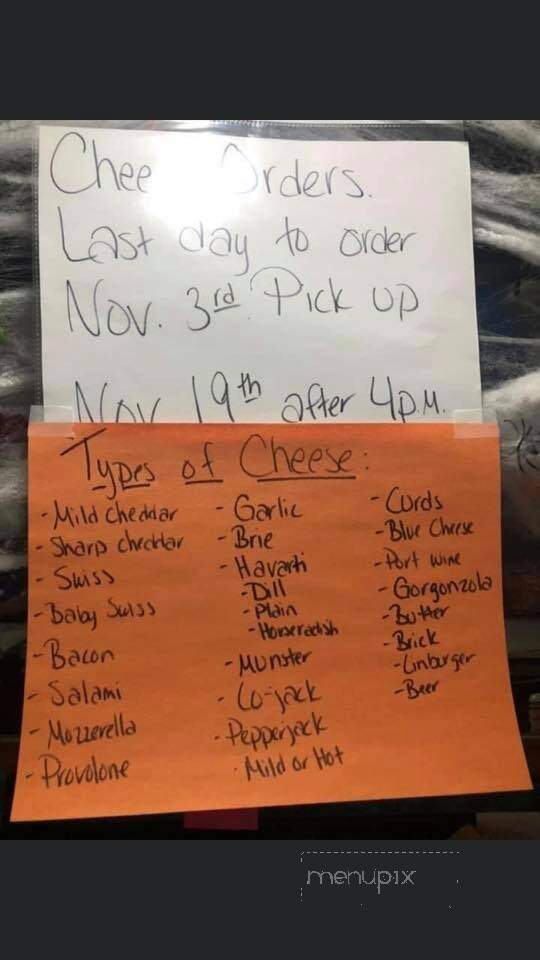 Chee Orders.
Last day to order
Nov. 3rd Pick up
Nov 19th after 4p.m.
Types of Cheese:
- Mild Cheddar
- Sharp cheddar
- Swiss
- Baby Swiss
- Bacon
- Salami
- Mozzerella
- Provolone
- Garlic
- Brie
- Havarti
- Dill
- Plain
- Horseradish
- Munster
- Co-jack
- Pepperjack
· Mild or Hot
- Curds
- Blue Cheese
- Port wine
- Gorgonzola
- Butter
- Brick
- Linburger
- Beer
menupix